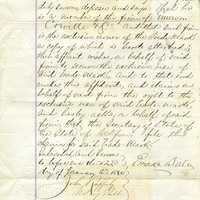 duly sworn, deposes and says: that he
is a member of the firm of Emerson
Corville & Co. and that said firm
is the exclusive owner of the Trade Mark
a copy of which is hereto attached &
that affiant wishes, on behalf of said
firm to secure the exclusive use of
said Trade Mark, and to that end
makes this affidavit, and claims on
behalf of said firm the right to the
exclusive use of said trade mark,
and hereby asks, on behalf of said
firm, that the Secretary of State of
the State of California file this
claim to said Trade Mark
Subscribed and sworn
to before me this 23d
day of January A.D. 1880
John